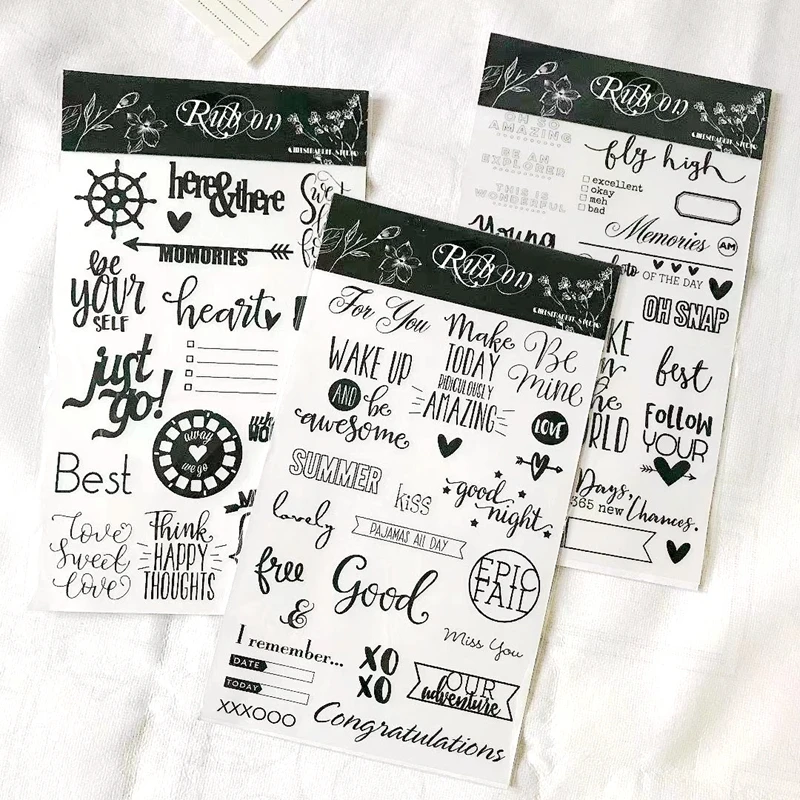 Rub on
here&there
MOMORIES
be
YOUR
SELF
heart
just
go!
away
we go
Best
Love
Sweet
Love
Think
HAPPY
THOUGHTS
Rub on
For You
Make
TODAY
RIDICULOUSLY
AMAZING
Be
Mine
WAKE UP
AND be
awesome
LOVE
SUMMER
kiss
good
night
lovely
PAJAMAS ALL DAY
free
&
Good
EPIC
FAIL
Miss You
I remember...
DATE
TODAY
XO
XO
OUR
adventure
XXXOOO
Congratulations
Rub on
OH SO
AMAZING
BE AN
EXPLORER
THIS IS
WONDERFUL
fly high
excellent
okay
meh
bad
Young
Memories
AM
OF THE DAY
OH SNAP
best
FOLLOW
YOUR
Days,
365 new Chances.